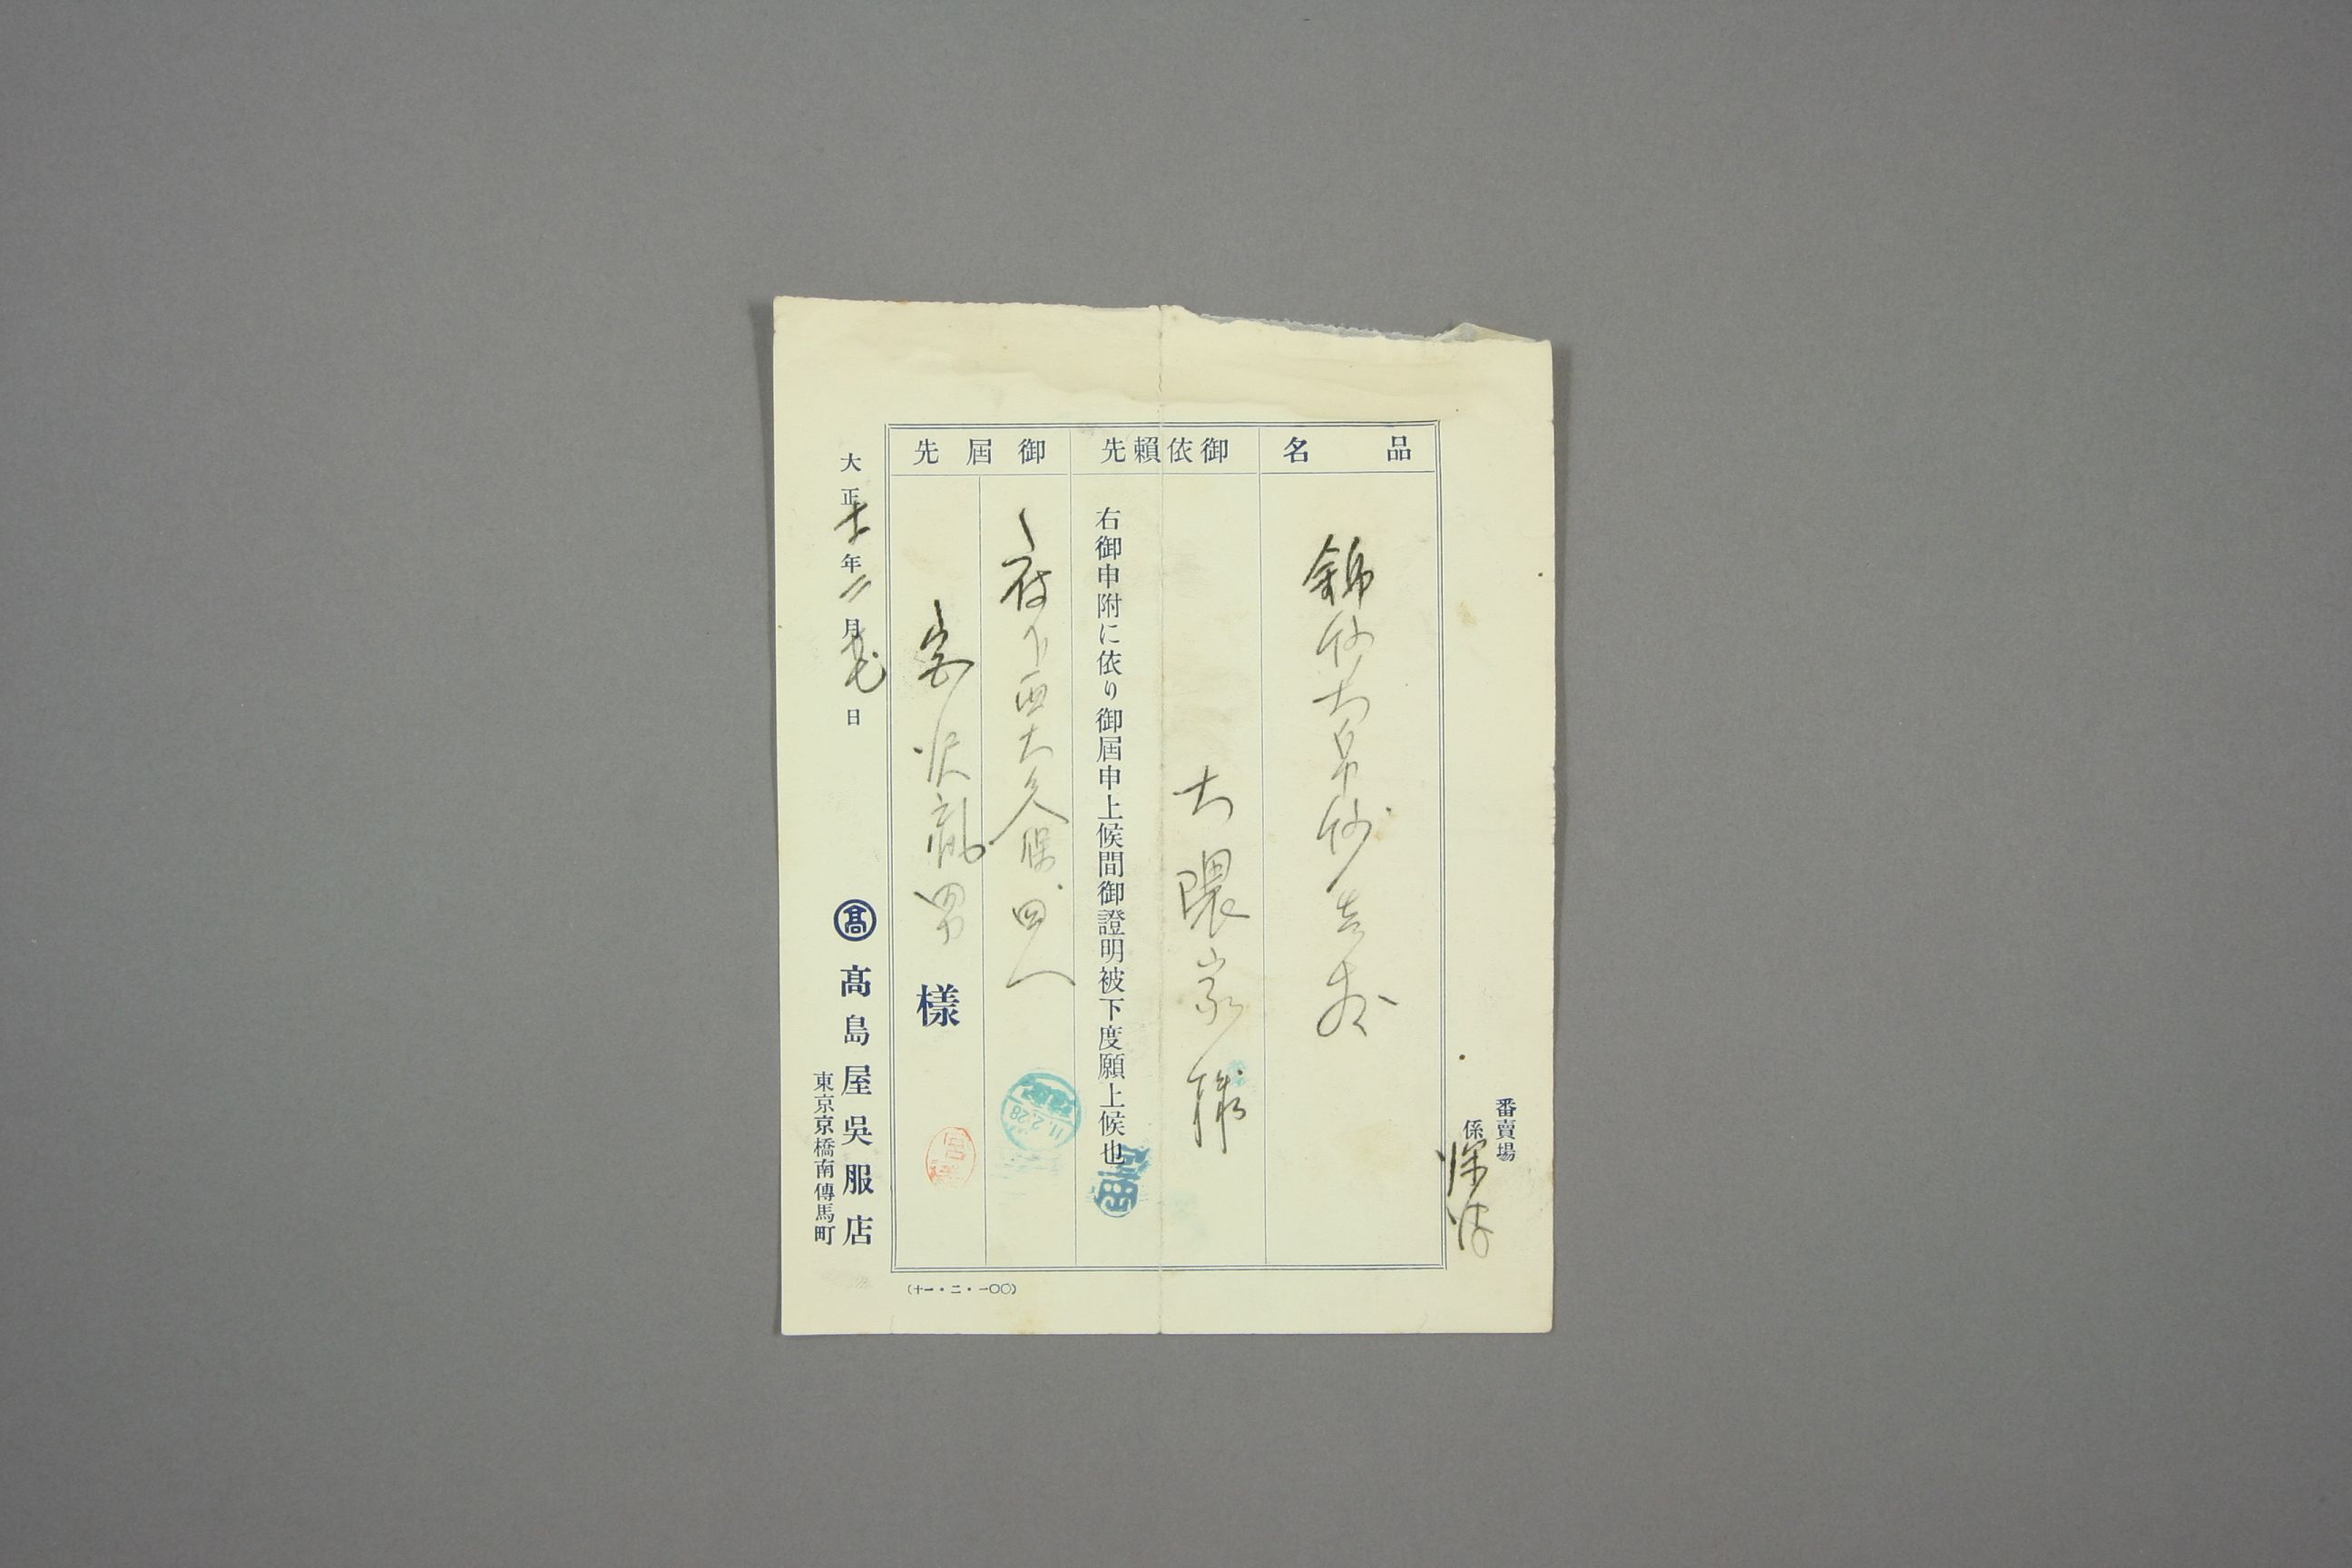 番賣場
係
品名
錦紗大帛紗壱枚
御依頼先
大隈家様
右御申附に依り御届申上候間御證明被下度願上候也
御届先
府下西大久保四
宮沢胤男様
大正十一年二月廿七日
髙
髙島屋吳服店
東京京橋南傳馬町
11.2.28
(十一・二・一〇〇)